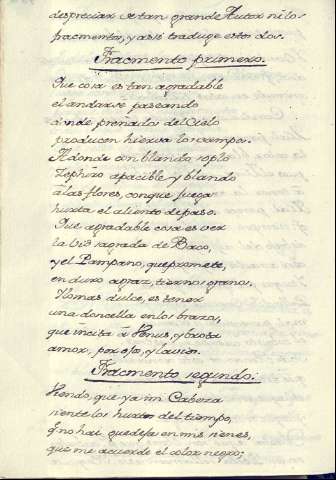 despreciar de tan grande Autor ni los
fragmentos, y assi traduge estos dos.
Fracmento primero.
Que cosa es tan agradable
el andarse paseando
donde preñados del Cielo
producen hierva los campos.
A donde con blando soplo
Zephiro apacible y blando
à las flores, conque juega
hurta el aliento de paso.
Que agradable cosa es ver
la vid sagrada de Baco,
y el Pampano, que promete,
en duro agraz, tiernos granos.
Y lo mas dulce, es tener
una doncella en los brazos,
que incita à Venus, y brota
amor, por ojos, y labios.
Fracmento segundo:
Viendo, que ya mi Cabeza
siente los hurtos del tiempo,
q no hai que dejen en mis sienes,
que me acuerde el color negro;